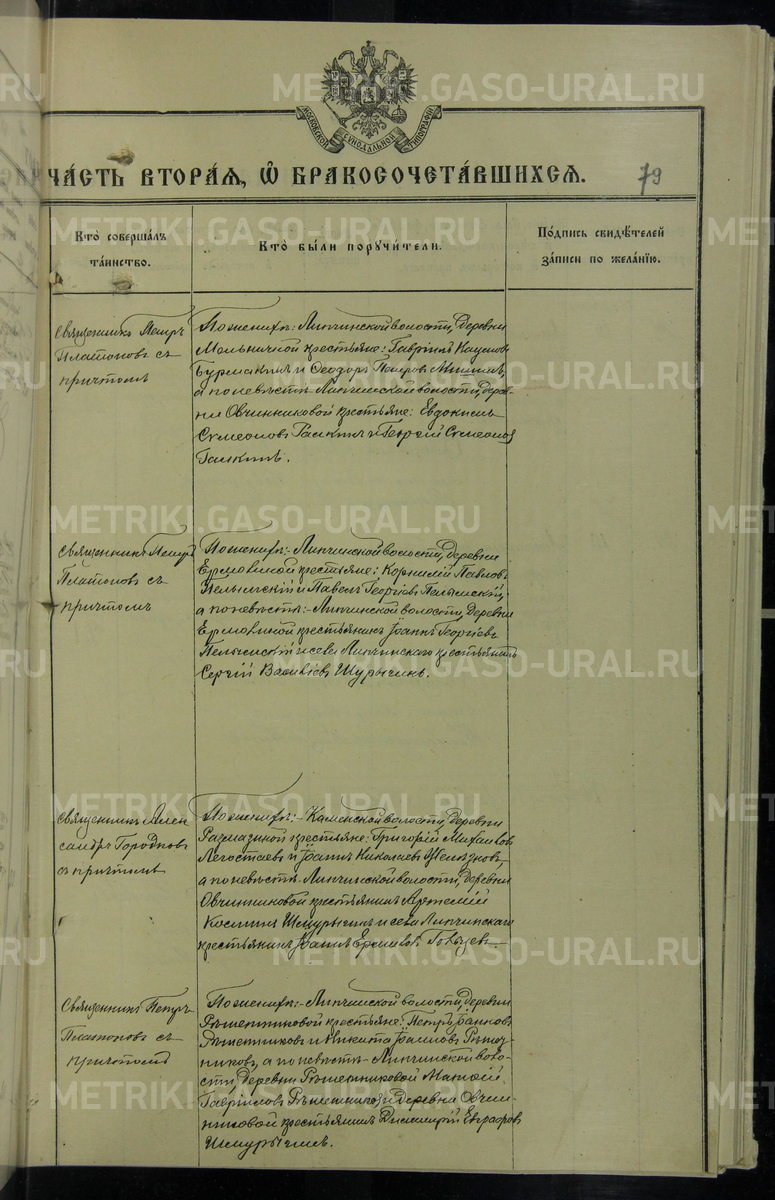 МОСКОВСКОЙ СѴНОДАЛЬНОЙ ТИПОГРАФІИ
ЧА́СТЬ ВТОРА́Я, Ѿ БРАКОСОЧЕТА́ВШИХСЯ.
79
Кто̀ соверша́лъ
та́инство.
Кто̀ бы́ли поручи́тели.
По́дпись свидѣ́телей
за́писи по жела́нїю.
Священникъ Петръ
Платоновъ съ
причтомъ
По женихѣ: Липчинской волости, деревни
Мельничной крестьяне: Гавріилъ Наумовъ
Бурмакинъ и Ѳеодоръ Петровъ
а по невѣстѣ Липчинской волости, дерев-
ни Овчинниковой крестьяне: Евдокимъ
Сѵмеоновъ Галкинъ и Георгій Сѵмеоновъ
Галкинъ.
Священникъ Петръ
Платоновъ съ
причтомъ
По женихѣ:- Липчинской волости, деревни
Ермолиной крестьяне: Корнилій Павловъ
Пелымскій и Павелъ Георгіевъ Пелымскій,
а по невѣстѣ:- Липчинской волости, деревни
Ермолиной крестьянинъ Іоаннъ Георгіевъ
Пелымскій и села Липчинскаго крестьянинъ
Сергій Васильевъ Шурыгинъ.
Священникъ Алек
сандръ Городковъ
съ причтомъ
По женихѣ:- Каменской волости, деревни
крестьяне: Григорій Михаиловъ
Легостаевъ и Іоаннъ Николаевъ
а по невѣстѣ Липчинской волости, деревни
Овчинниковой крестьянинъ Артемій
Косминъ Шмурыгинъ и села Липчинскаго
крестьянинъ Іоаннъ
Священникъ Петръ
Платоновъ съ
причтомъ
По женихѣ:- Липчинской волости, деревни
Рѣшетниковой крестьяне: Петръ Іоанновъ
Рѣшетниковъ и Никита Іоанновъ Рѣшет-
никовъ, а по невѣстѣ - Липчинской воло-
сти, деревни Рѣшетниковой Матѳій
Гавріиловъ Рѣшетниковъ и деревни Овчин-
никовой крестьянинъ Димитрій Евграфовъ
Шмурыгинъ.
METRIKI.GASO-URAL.RU